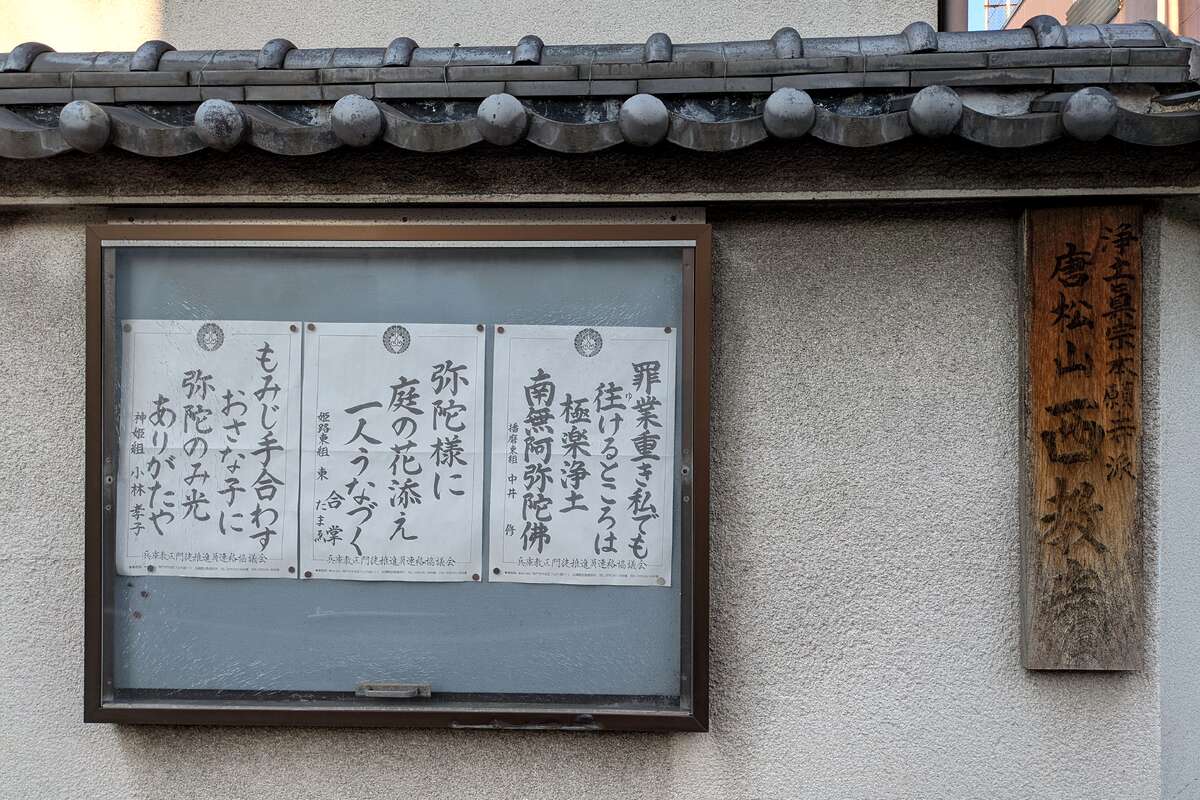 浄土眞宗本願寺派
唐松山西教寺
罪業重き私でも
往けるところは
ゆ
極楽浄土
南無阿弥陀佛
播磨東組 中井 修
兵庫教区門徒推進員連絡協議会
弥陀様に
庭の花添え
一人うなづく
合掌
姫路東組 東 たまゑ
兵庫教区門徒推進員連絡協議会
もみじ手合わす
おさな子に
弥陀のみ光
ありがたや
神姫組 小林孝子
兵庫教区門徒推進員連絡協議会